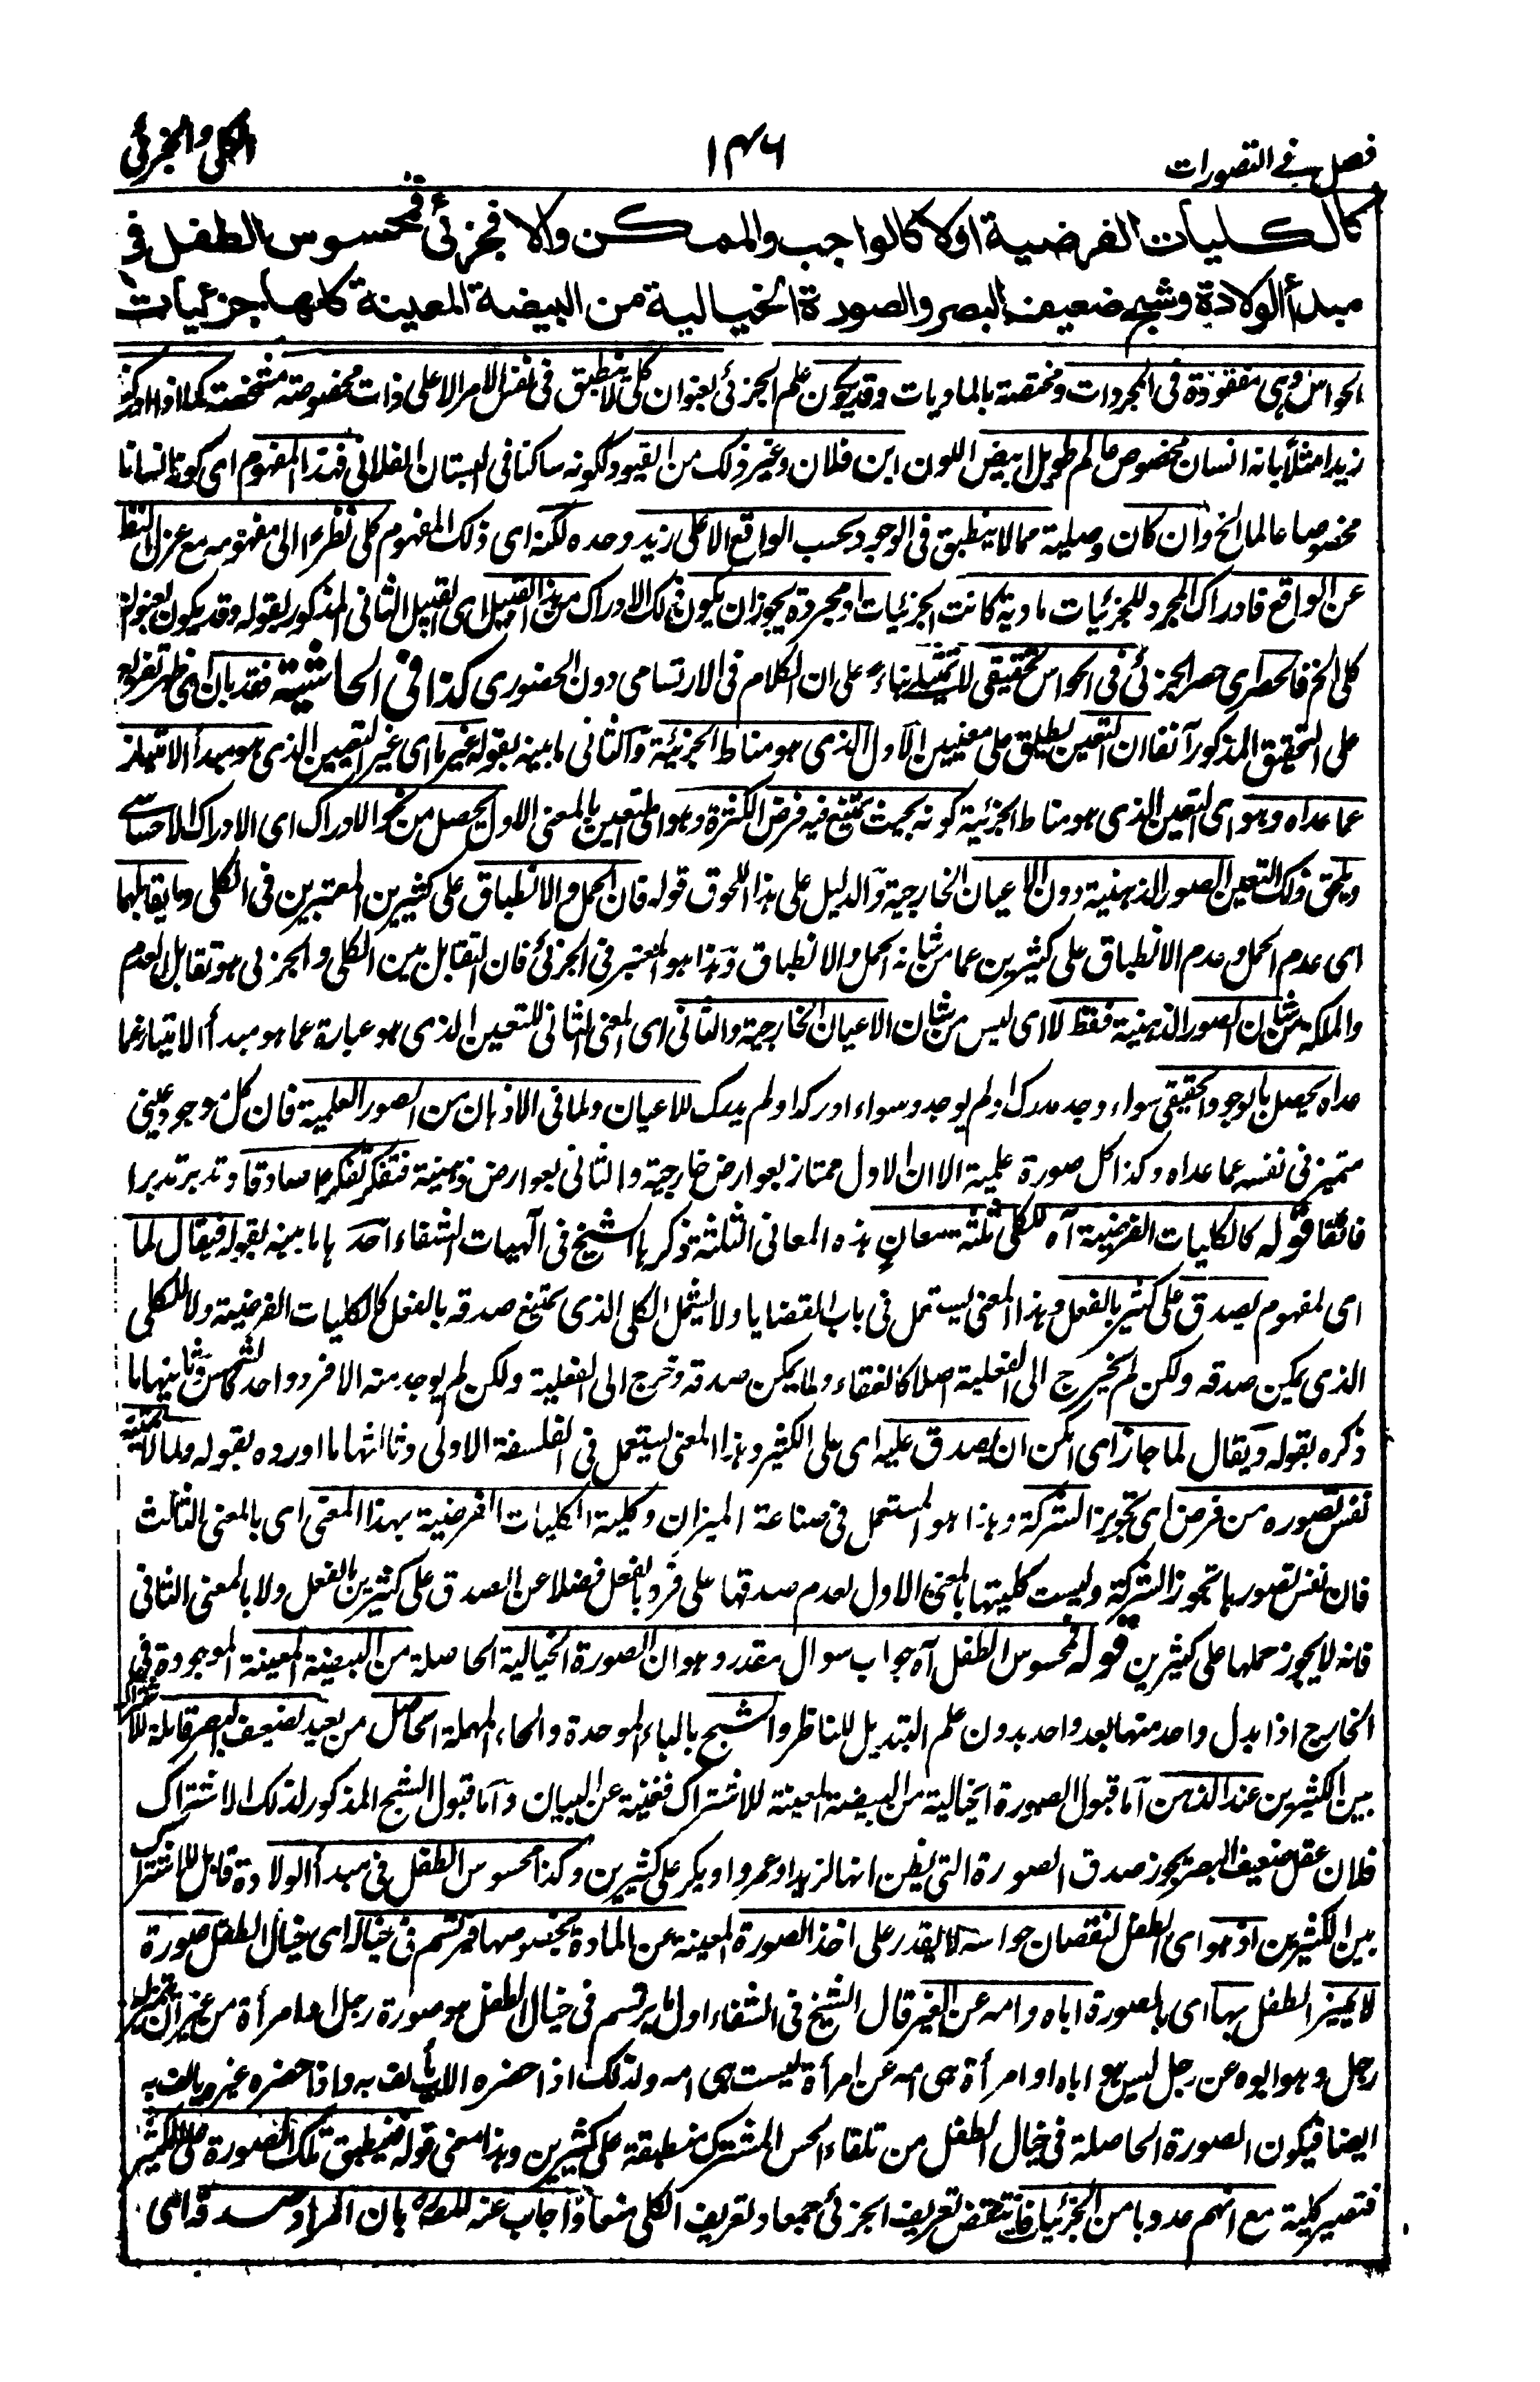 فصل في التصورات
١٤٦
الكلي والجزئي
كالكليات الفرضية اولا كالواجب والممكن والا فجزئي فمحسوس الطفل في
مبدأ الولادة وشبح ضعيف البصر والصورة الخيالية من البيضة المعينة كلها جزئيات
الحواس وهي مفقودة في المجردات ومختصة بالماديات وقد يكون علم الجزئي بعنوان كلي لا ينطبق في نفس الامر الا على ذات مخصوصة متشخصة كما اذا ادرك
زيدا مثلا بانه انسان مخصوص عالم طويل ابيض اللون ابن فلان وغير ذلك من القيود ككونه ساكنا في البستان الفلاني فهذا المفهوم اي كونه انسانا
مخصوصا عالما الخ وان كان وصلية مما لا ينطبق في الوجود بحسب الواقع الا على زيد وحده لكنه اي ذلك المفهوم كلي نظرا الى مفهومه مع عزل النظر
عن الواقع فادراك المجرد للجزئيات مادية كانت الجزئيات او مجردة يجوز ان يكون ذلك الادراك من هذا القبيل اي القبيل الثاني المذكور بقوله وقد يكون بعنوان
كلي الخ فالحصر اي حصر الجزئي في الحواس حقيقي لا تمثيلي بناء على ان الكلام في الارتسامي دون الحضوري كذا في الحاشية فقد بان اي ظهر تفريع
على التحقيق المذكور آنفا ان التعين يطلق على معنيين الاول الذي هو مناط الجزئية والثاني ما بينه بقوله غير ما اي غير التعين الذي هو مبدأ الامتياز
عما عداه وهو اي التعين الذي هو مناط الجزئية كونه بحيث يمتنع فيه فرض الكثرة وهو اي التعين بالمعنى الاول يحصل من نحو الادراك اي الادراك الاحساسي
ويلحق ذلك التعين الصور الذهنية دون الاعيان الخارجية والدليل على هذا اللحوق قوله فان الحمل والانطباق على كثيرين المعتبرين في الكلي وما يقابلهما
اي عدم الحمل وعدم الانطباق على كثيرين عما من شانه الحمل والانطباق وهذا هو المعتبر في الجزئي فان التقابل بين الكلي والجزئي هو تقابل العدم
والملكة من شان الصور الذهنية فقط لا اي ليس من شان الاعيان الخارجية والثاني اي المعنى الثاني للتعين الذي هو عبارة عما هو مبدأ الامتياز عما
عداه يحصل بالوجود الحقيقي سواء وجد مدرك او لم يوجد وسواء ادرك او لم يدرك للاعيان ولما في الاذهان من الصور العلمية فان كل موجود عيني
متميز في نفسه عما عداه وكذا كل صورة علمية الا ان الاول ممتاز بعوارض خارجية والثاني بعوارض ذهنية فتفكر تفكرا صادقا وتدبر تدبرا
فائقا قوله كالكليات الفرضية آه للكلي ثلثة معان هذه المعاني الثلثة ذكرها الشيخ في الٓهيات الشفاء احدها ما بينه بقوله فيقال لما
اي لمفهوم يصدق على كثير بالفعل وهذا المعنى يستعمل في باب القضايا ولا يشمل الكلي الذي يمتنع صدقه بالفعل كالكليات الفرضية ولا للكلي
الذي يمكن صدقه ولكن لم يخرج الى الفعلية اصلا كالعنقاء ولما يمكن صدقه وخرج الى الفعلية ولكن لم يوجد منه الا فرد واحد كالشمس وثانيها ما
ذكره بقوله ويقال لما جاز اي امكن ان يصدق عليه اي على الكثير وهذا المعنى يستعمل في الفلسفة الاولى وثالثها ما اورده بقوله ولما لا يمتنع
نفس تصوره من فرض اي تجويز الشركة وهذا هو المستعمل في صناعة الميزان وكلية الكليات الفرضية بهذا المعنى اي بالمعنى الثالث
فان نفس تصورها تجوز الشركة وليست كليتها بالمعنى الاول لعدم صدقها على فرد بالفعل فضلا عن الصدق على كثيرين بالفعل ولا بالمعنى الثاني
فانه لا يجوز حملها على كثيرين قوله فمحسوس الطفل آه جواب سوال مقدر وهو ان الصورة الخيالية الحاصلة من البيضة المعينة الموجودة في
الخارج اذا بدل واحد منها بعد واحد بدون علم التبديل للناظر والشبح بالباء الموحدة والحاء المهملة الحاصل من بعيد لضعيف البصر قابلة للاشتراك
بين الكثيرين عند الذهن اما قبول الصورة الخيالية من البيضة المعينة للاشتراك فغنية عن البيان واما قبول الشبح المذكور لذلك الاشتراك
فلان عقل ضعيف البصر يجوز صدق الصورة التي يظن انها لزيد او عمرو او بكر على كثيرين وكذا محسوس الطفل في مبدأ الولادة قابل للاشتراك
بين الكثيرين اذ هو اي الطفل لنقصان حواسه لا يقدر على اخذ الصورة المعينة عن المادة بخصوصها فيرتسم في خياله اي خيال الطفل صورة
لا يميز الطفل بها اي بالصورة اباه وامه عن الغير قال الشيخ في الشفاء اول ما يرتسم في خيال الطفل هو صورة رجل او امرأة من غير ان يتميز
رجل وهو ابوه عن رجل ليس هو اباه او امرأة هي امه عن امرأة ليست هي امه ولذلك اذا حضره الاب يألف به واذا حضره غيره يألف به
ايضا فيكون الصورة الحاصلة في خيال الطفل من تلقاء الحس المشترك منطبقة على كثيرين وهذا معنى قوله فينطبق تلك الصورة على الكثير
فتصير كلية مع انهم عدوها من الجزئيات فانتقض تعريف الجزئي جمعا وتعريف الكلي منعا واجاب عنه المصنف بان المراد صدقه اي